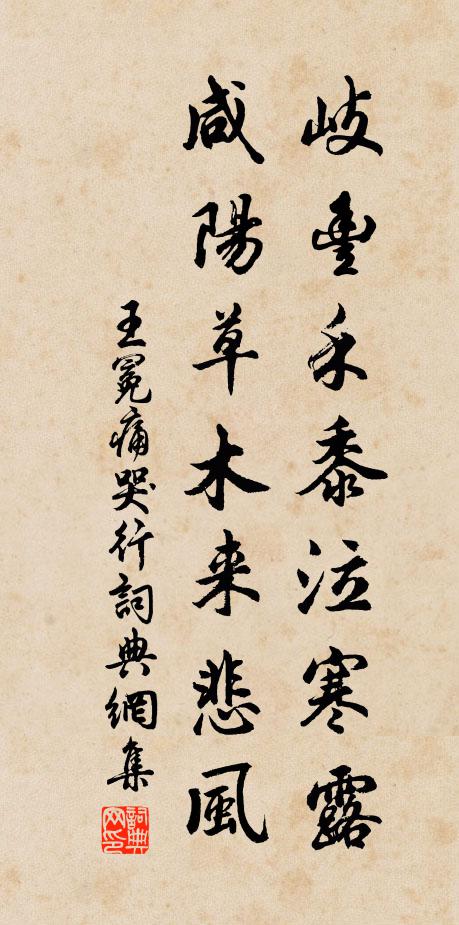 岐豐禾黍泣寒露
咸陽草木来悲風
王冕痛哭行詞典網集
詞典网印